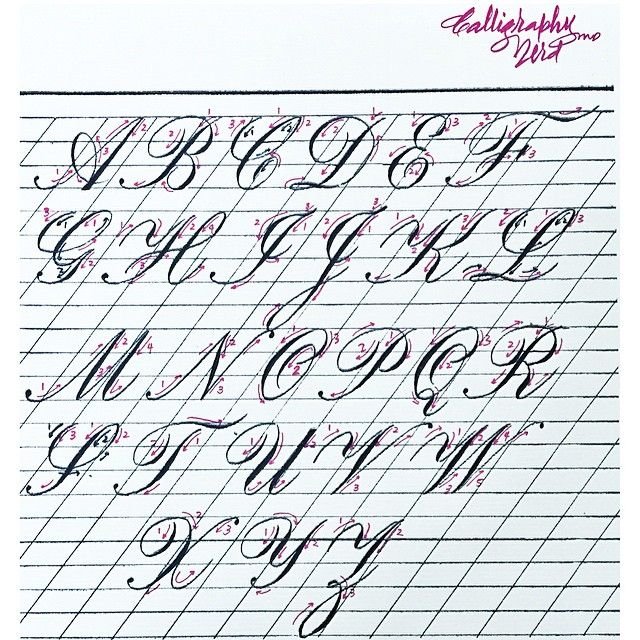 Calligraphy
Nerd
A B C D E F
G H I J K L
M N O P Q R
S T U V W
X Y Z